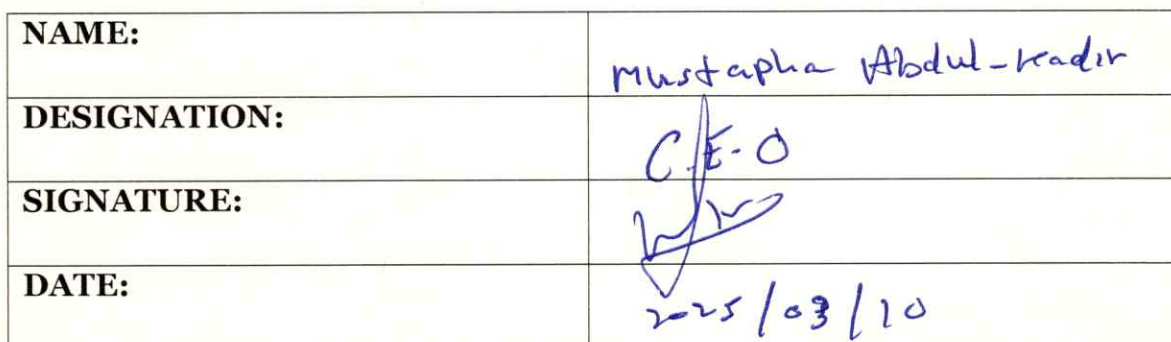 NAME: Mustapha Abdul-Kadir
DESIGNATION: C.E.O
SIGNATURE:
DATE: 2025/03/10